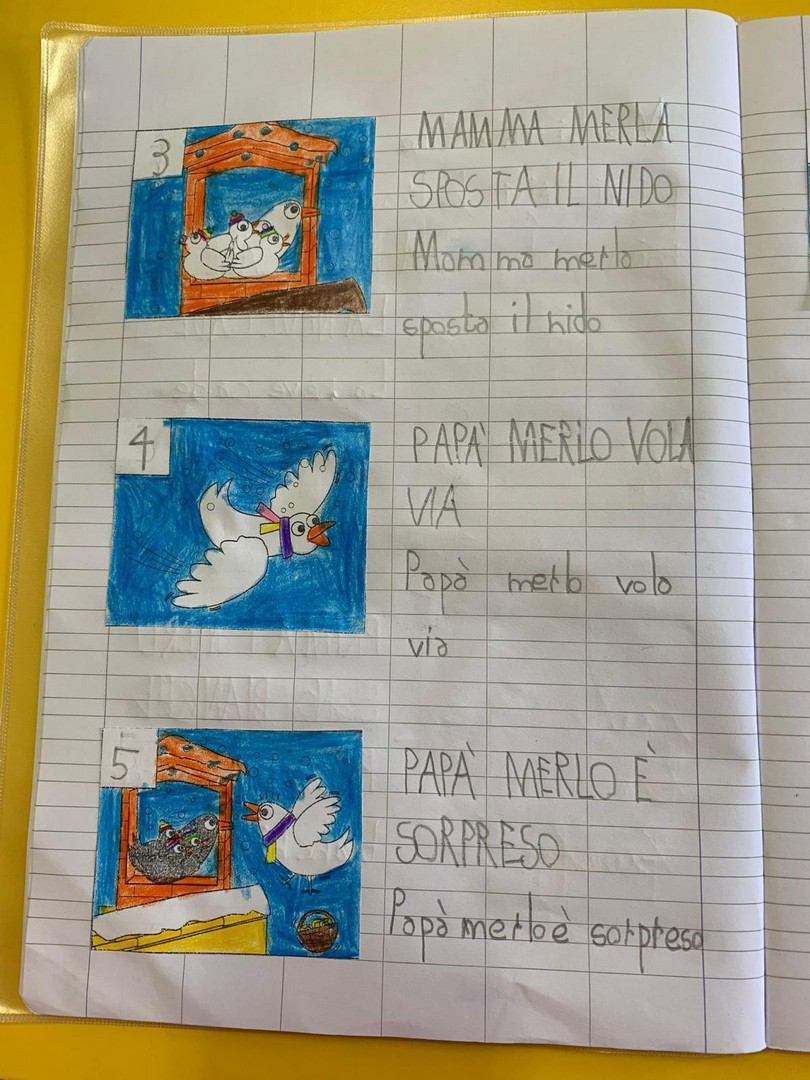 3
MAMMA MERLA
SPOSTA IL NIDO
Mamma merla
sposta il nido
4
PAPA' MERLO VOLA
VIA
Papà merlo vola
via
5
PAPÀ MERLO È
SORPRESO
Papà merlo è sorpreso